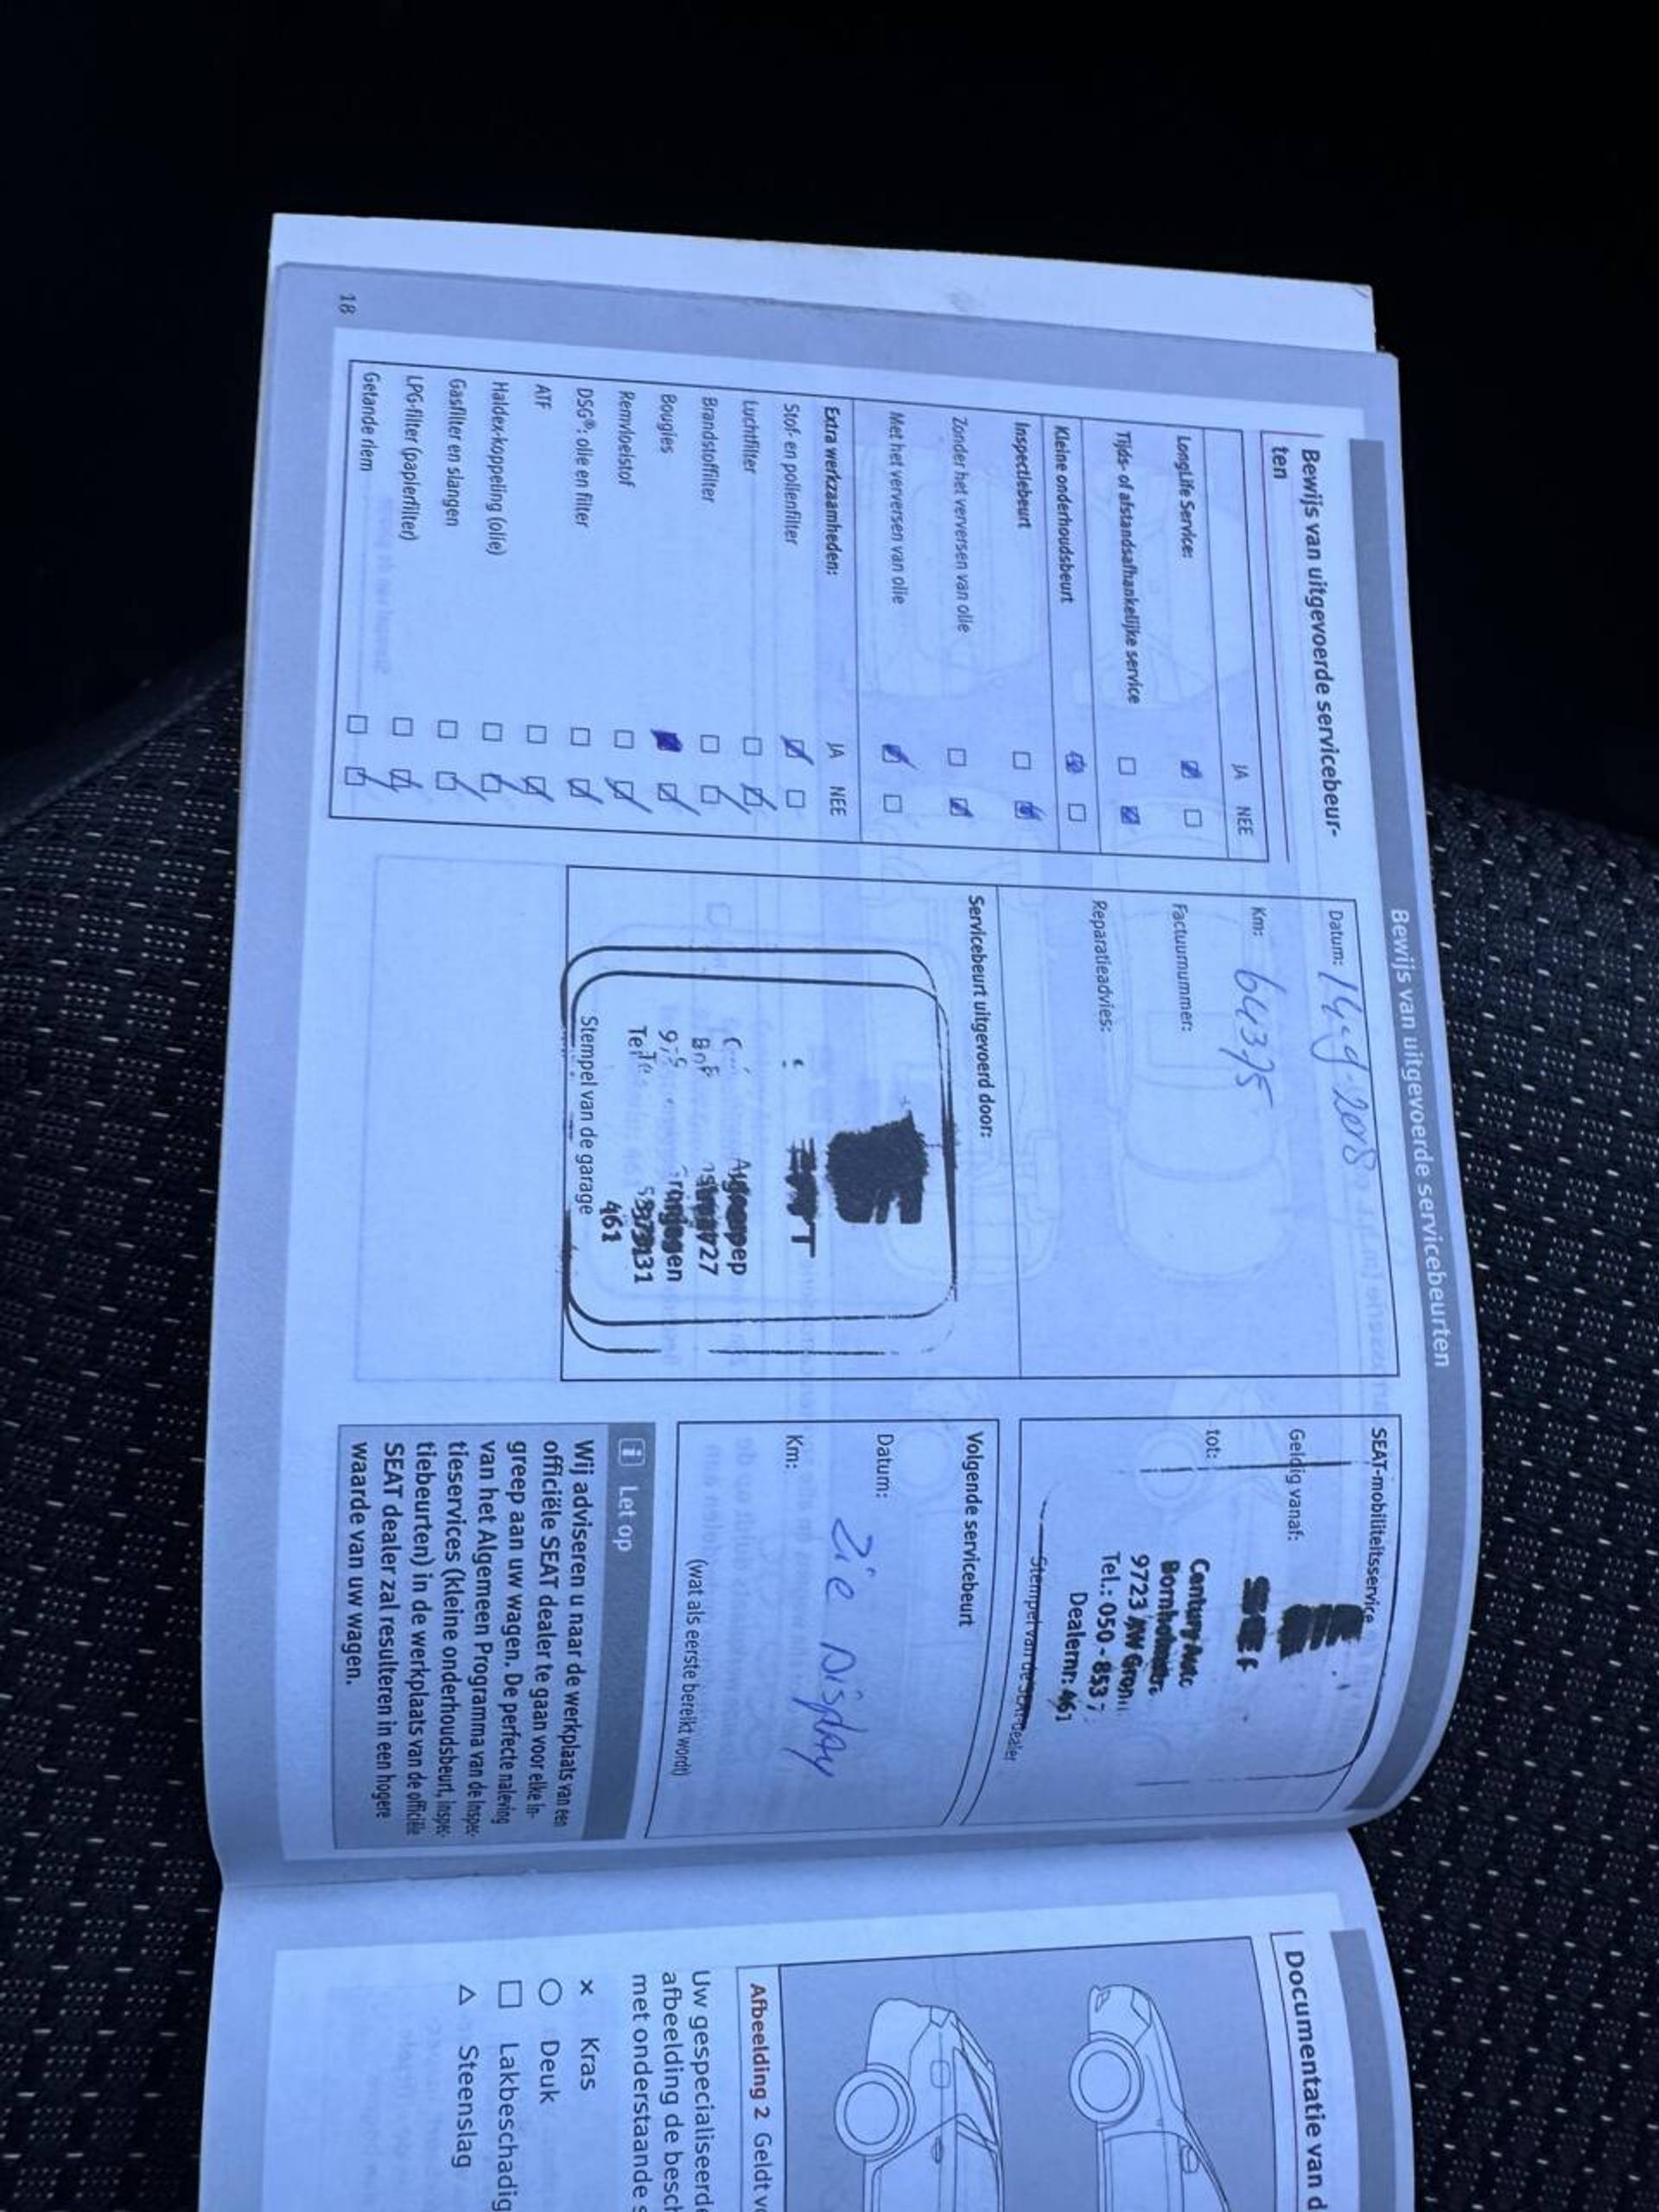 Bewijs van uitgevoerde servicebeurten
Bewijs van uitgevoerde servicebeur-
ten
JA NEE
LongLife Service:
Tijds- of afstandsafhankelijke service
Kleine onderhoudsbeurt
Inspectiebeurt
Zonder het verversen van olie
Met het verversen van olie
Extra werkzaamheden: JA NEE
Stof- en pollenfilter
Luchtfilter
Brandstoffilter
Bougies
Remvloeistof
DSG®: olie en filter
ATF
Haldex-koppeling (olie)
Gasfilter en slangen
LPG-filter (papierfilter)
Getande riem
18
Datum: 14-9-2018
Km: 64375
Factuurnummer:
Reparatieadvies:
Servicebeurt uitgevoerd door:
461
Stempel van de garage
SEAT-mobiliteitsservice
Geldig vanaf:
tot:
Century Auto
9723 AW Gron
Tel.: 050 - 853 7
Dealernr: 461
Stempel van de SEAT-dealer
Volgende servicebeurt
Datum:
Zie Display
Km:
(wat als eerste bereikt wordt)
i Let op
Wij adviseren u naar de werkplaats van een
officiële SEAT dealer te gaan voor elke in-
greep aan uw wagen. De perfecte naleving
van het Algemeen Programma van de Inspec-
tieservices (kleine onderhoudsbeurt, inspec-
tiebeurten) in de werkplaats van de officiële
SEAT dealer zal resulteren in een hogere
waarde van uw wagen.
Documentatie van d
Afbeelding 2 Geldt v
Uw gespecialiseerd
afbeelding de besch
met onderstaande s
× Kras
○ Deuk
□ Lakbeschadig
△ Steenslag